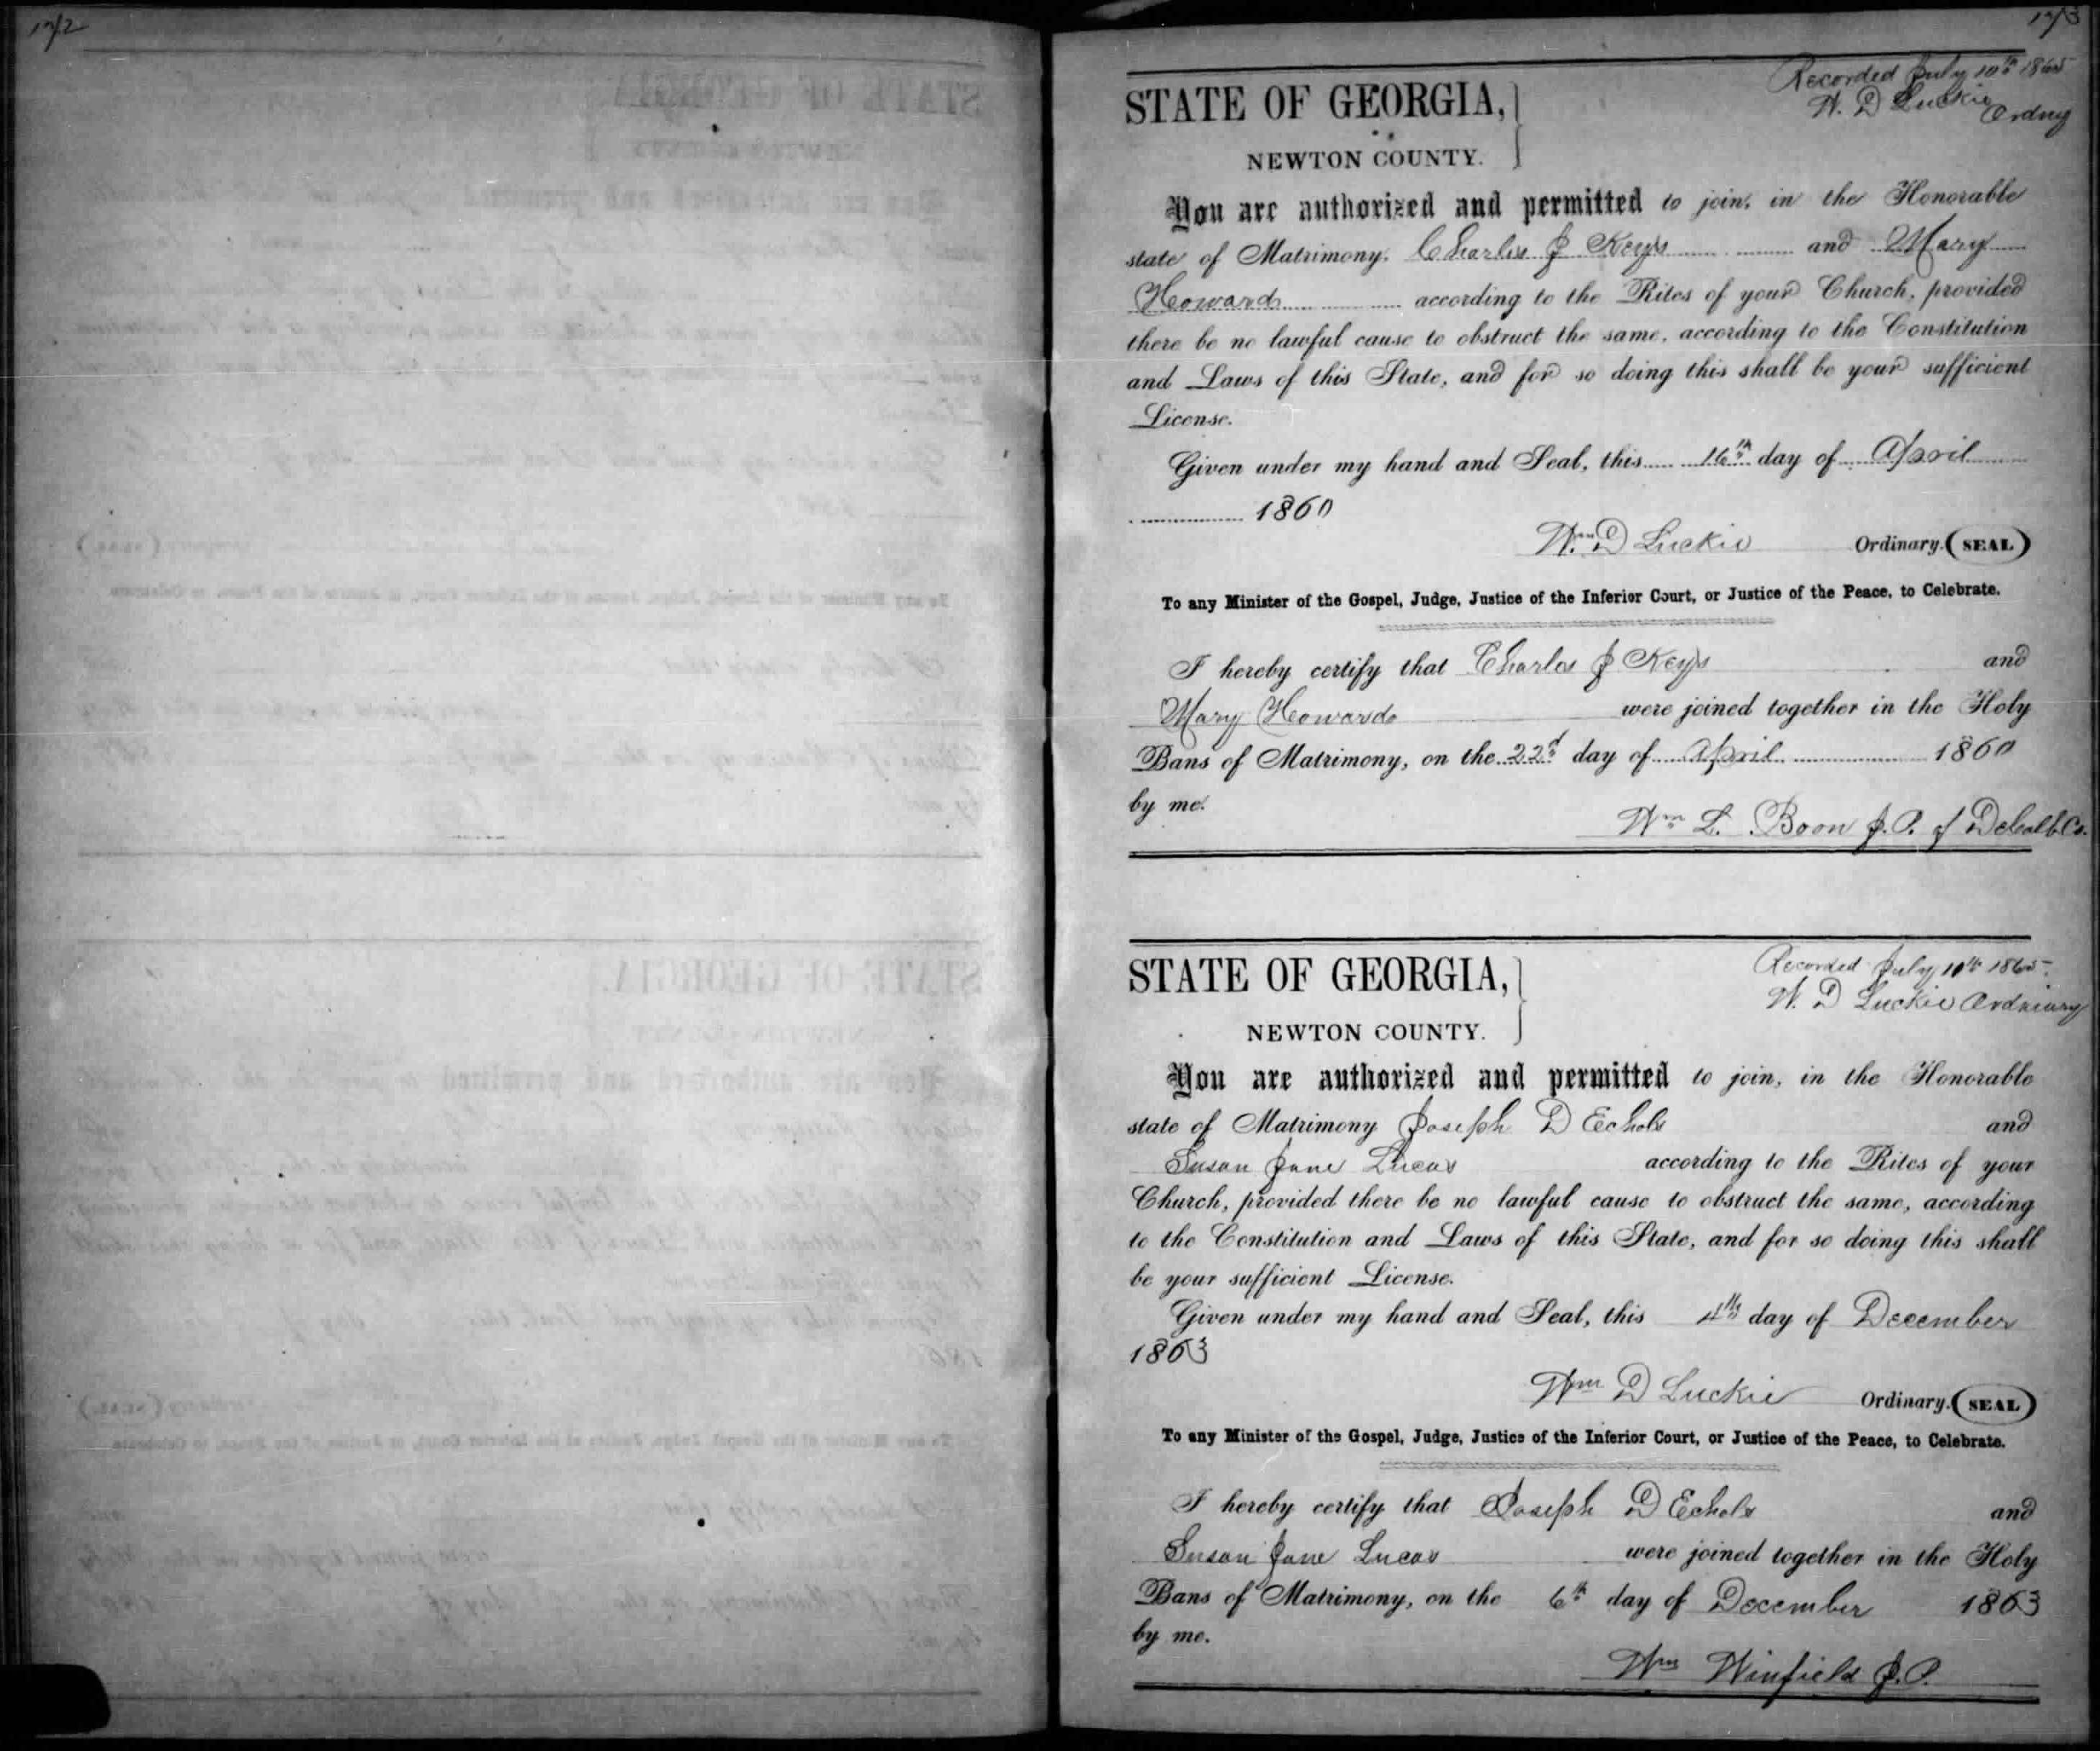 172
173
Recorded July 10th 1865
W. D Luckie Ordny
STATE OF GEORGIA,
NEWTON COUNTY.
You are authorized and permitted to join, in the Honorable
state of Matrimony, Charles J Keys and Mary
Howard according to the Rites of your Church, provided
there be no lawful cause to obstruct the same, according to the Constitution
and Laws of this State, and for so doing this shall be your sufficient
License.
Given under my hand and Seal, this 16th day of April
1860
Wm D Luckie Ordinary. (SEAL)
To any Minister of the Gospel, Judge, Justice of the Inferior Court, or Justice of the Peace, to Celebrate.
I hereby certify that Charles J Keys and
Mary Howard were joined together in the Holy
Bans of Matrimony, on the 22d day of April 1860
by me.
Wm L. Boon J.P. of DeKalb Co.
Recorded July 10th 1865
W. D Luckie Ordinary
STATE OF GEORGIA,
NEWTON COUNTY.
You are authorized and permitted to join, in the Honorable
state of Matrimony Joseph D Echols and
Susan Jane Lucas according to the Rites of your
Church, provided there be no lawful cause to obstruct the same, according
to the Constitution and Laws of this State, and for so doing this shall
be your sufficient License.
Given under my hand and Seal, this 4th day of December
1863
Wm D Luckie Ordinary. (SEAL)
To any Minister of the Gospel, Judge, Justice of the Inferior Court, or Justice of the Peace, to Celebrate.
I hereby certify that Joseph D Echols and
Susan Jane Lucas were joined together in the Holy
Bans of Matrimony, on the 6th day of December 1863
by me.
Wm Winfield J.P.